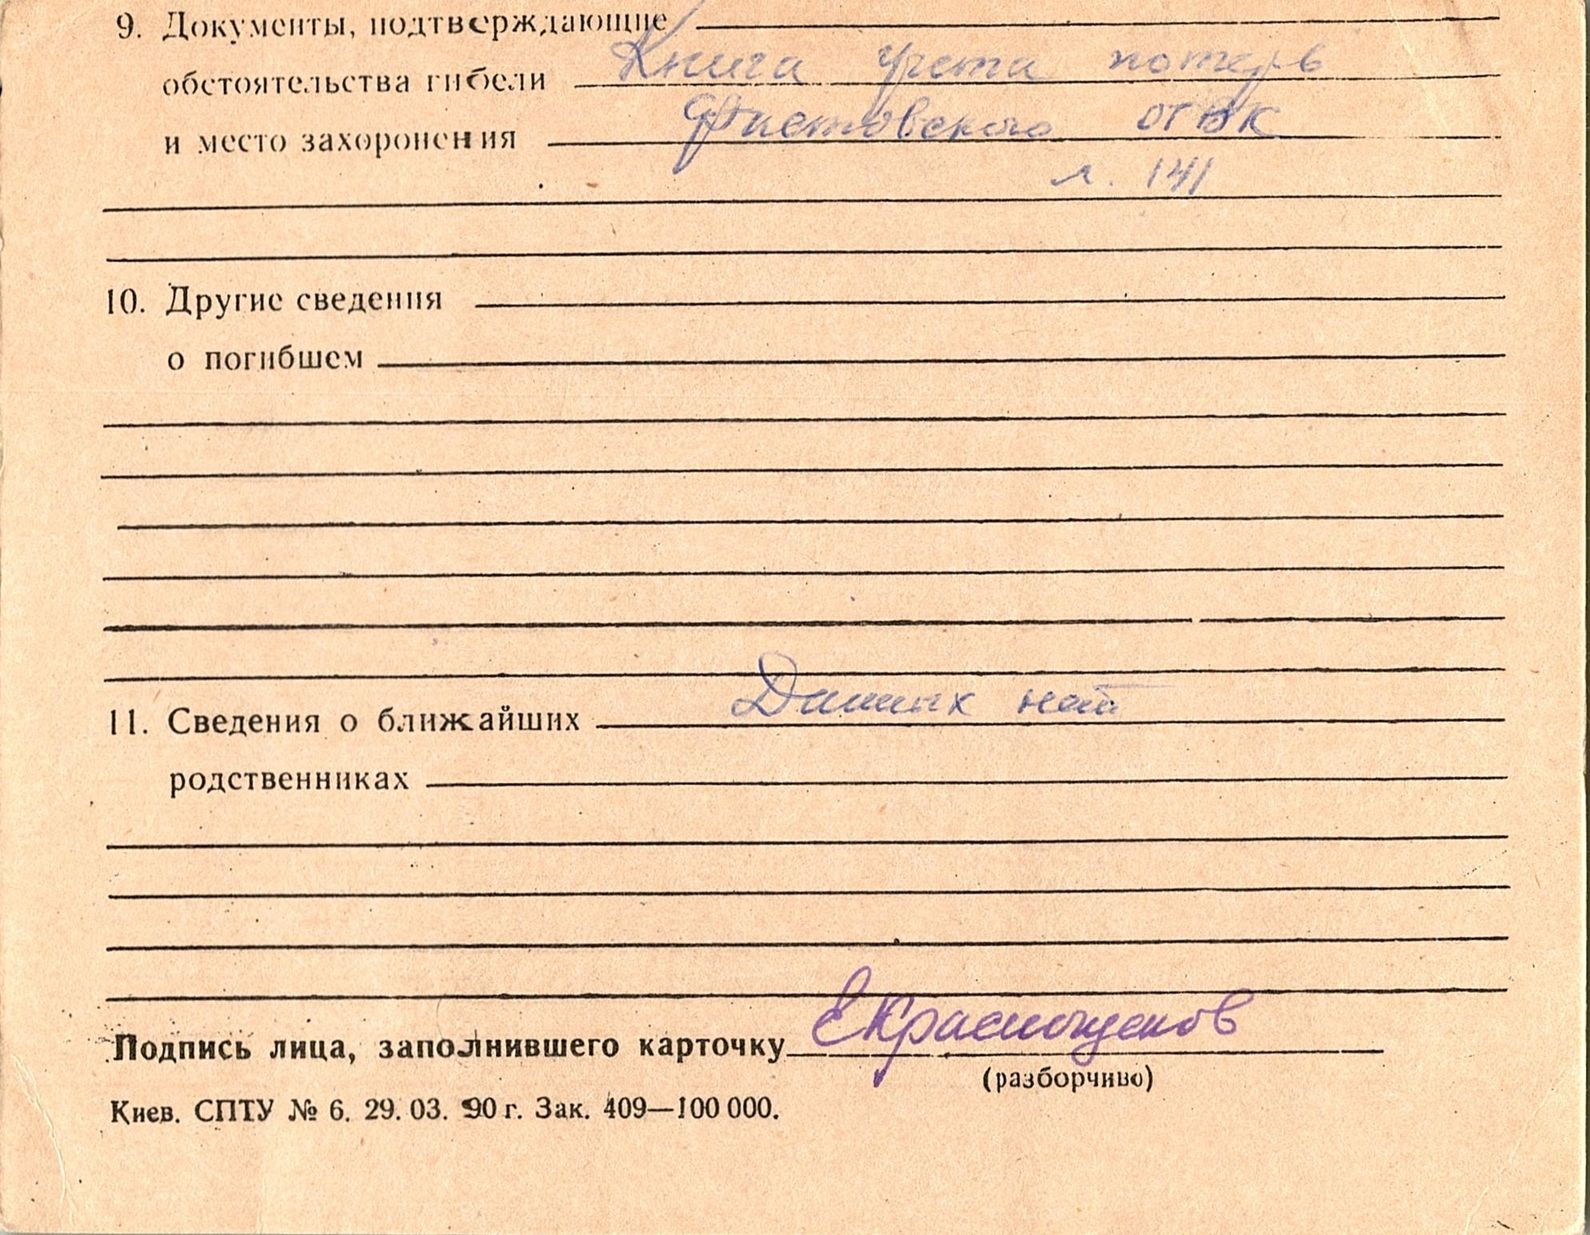 9. Документы, подтверждающие
обстоятельства гибели Книга учета потерь
и место захоронения Фастовского ОГВК
л. 141
10. Другие сведения
о погибшем
11. Сведения о ближайших Данных нет
родственниках
Подпись лица, заполнившего карточку ЕКраснощеков
(разборчиво)
Киев. СПТУ № 6. 29. 03. 90 г. Зак. 409—100 000.